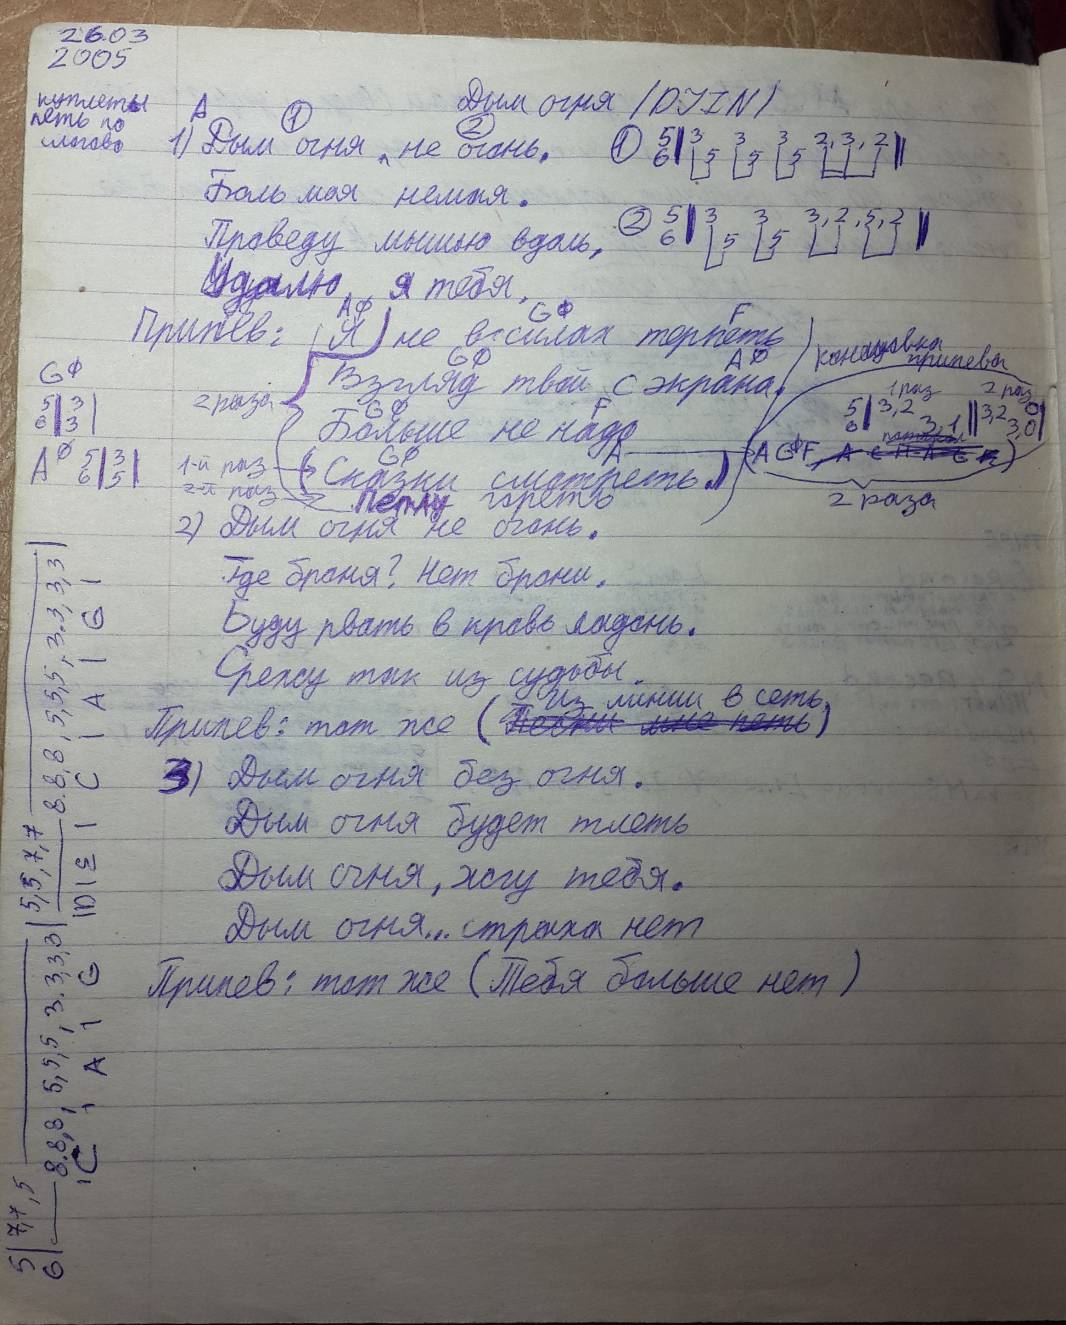 26.03
2005
куплеты
петь по
слогово
Дым огня (DJIN)
A ① ②
1) Дым огня, не огонь.
① 5 6 3 5 3 5 3 5 2, 3, 2
Боль моя немая.
Проведу мышью вдаль,
② 5 6 3 5 3 5 3, 2, 5, 2
Удалю я тебя.
AФ GФ F
Припев: (Я) не в силах терпеть
GФ AФ
Взгляд твой с экрана.
2 раза
GФ F
Больше не надо
GФ A
1-й раз (Сказки смотреть.)
2-й раз Пеплу гореть
GФ
5 6 3 3
AФ 5 6 3 5
концовка
припева
1 раз 2 раз
5 6 3, 2 3, 1 3, 2 0 3, 0
(A GФ F
2 раза
2) Дым огня не огонь.
Где броня? Нет брони.
Буду рвать в кровь ладонь.
Срежу так из судьбы.
Из линии в сеть.
Припев: тот же (Песни мне петь)
3) Дым огня без огня.
Дым огня будет тлеть
Дым огня, жгу тебя.
Дым огня... страха нет
Припев: тот же (Тебя больше нет)
5 7,7,5 5,5,7,7
6 8.8,8, 5,5,5, 3.3,3,3 8.8,8, 5,5,5, 3.3,3,3
C A G D E C A G